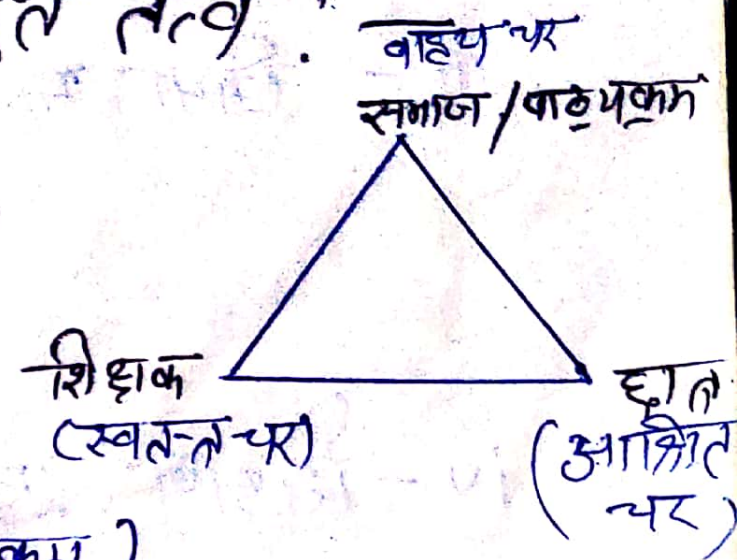 त तत्व .
वाह्य चर
समाज / पाठ्यक्रम
शिक्षक
(स्वतन्त चर)
छात्त
(आश्रित
चर)